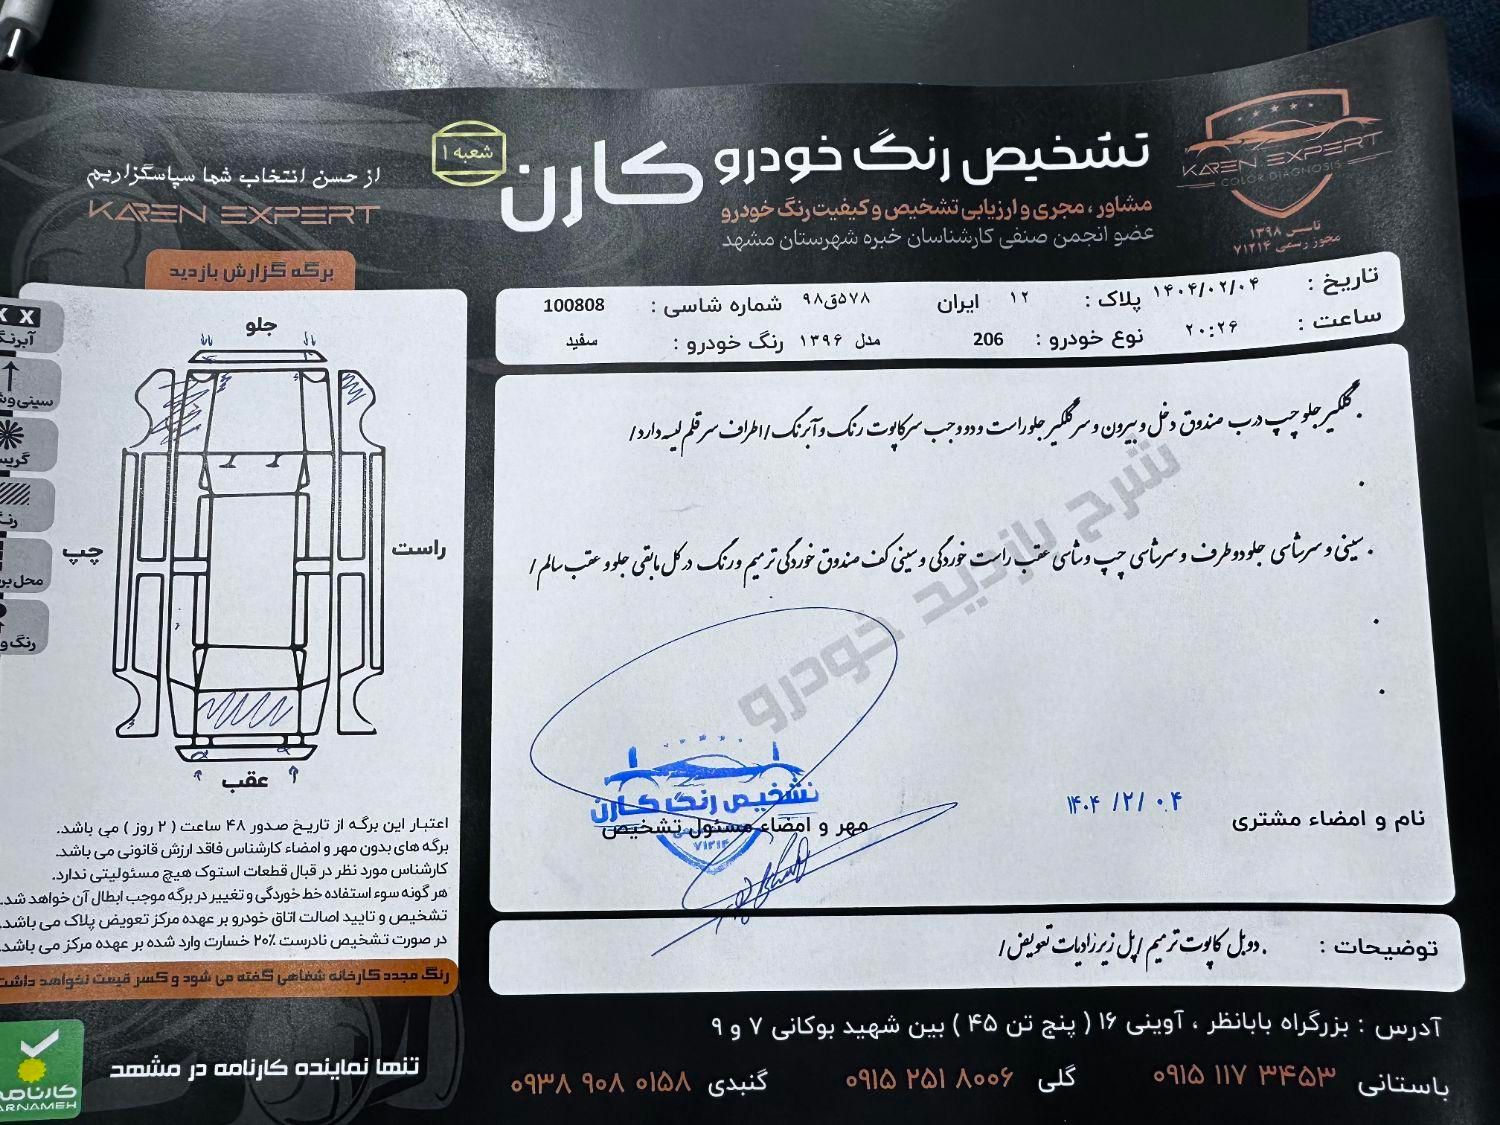 تشخیص رنگ خودرو کارن
شعبه ۱
مشاور ، مجری و ارزیابی تشخیص و کیفیت رنگ خودرو
عضو انجمن صنفی کارشناسان خبره شهرستان مشهد
KAREN EXPERT
COLOR DIAGNOSIS
تاسیس ۱۳۹۸
مجوز رسمی ۷۱۲۱۴
از حسن انتخاب شما سپاسگزاریم
KAREN EXPERT
تاریخ : ۱۴۰۴/۰۲/۰۴ پلاک : ۱۲ ایران ۵۷۸ق۹۸ شماره شاسی : 100808
ساعت : ۲۰:۲۶ نوع خودرو : 206 مدل ۱۳۹۶ رنگ خودرو : سفید
. گلگیر جلو چپ درب صندوق دخل و بیرون و سر گلگیر جلو راست و دو وجب سر کاپوت رنگ و آبرنگ / اطراف سر قلم لیسه دارد /
.
. سینی و سرشاسی جلو دو طرف و سرشاسی چپ و شاسی عقب راست خوردگی و سینی کف صندوق خوردگی ترمیم و رنگ در کل مابقی جلو و عقب سالم /
.
.
شرح بازدید خودرو
نام و امضاء مشتری
۱۴۰۴ /۲/ ۰.۴
مهر و امضاء مسئول تشخیص
تشخیص رنگ کارن
۷۱۲۱۴
توضیحات : .دوبل کاپوت ترمیم / پل زیر رادیات تعویض /
برگه گزارش بازدید
جلو
چپ
راست
عقب
X X
آبرنگ
محل بر
اعتبار این برگه از تاریخ صدور ۴۸ ساعت ( ۲ روز ) می باشد.
برگه های بدون مهر و امضاء کارشناس فاقد ارزش قانونی می باشد.
کارشناس مورد نظر در قبال قطعات استوک هیچ مسئولیتی ندارد.
هر گونه سوء استفاده خط خوردگی و تغییر در برگه موجب ابطال آن خواهد شد.
تشخیص و تایید اصالت اتاق خودرو بر عهده مرکز تعویض پلاک می باشد.
در صورت تشخیص نادرست ۲۰٪ خسارت وارد شده بر عهده مرکز می باشد.
رنگ مجدد کارخانه شفاهی گفته می شود و کسر قیمت نخواهد داشت
تنها نماینده کارنامه در مشهد
کارنامه
ARNAMEH
آدرس : بزرگراه بابانظر ، آوینی ۱۶ ( پنج تن ۴۵ ) بین شهید بوکانی ۷ و ۹
باستانی ۰۹۱۵ ۱۱۷ ۳۴۵۳ گلی ۰۹۱۵ ۲۵۱ ۸۰۰۶ گنبدی ۰۹۳۸ ۹۰۸ ۰۱۵۸